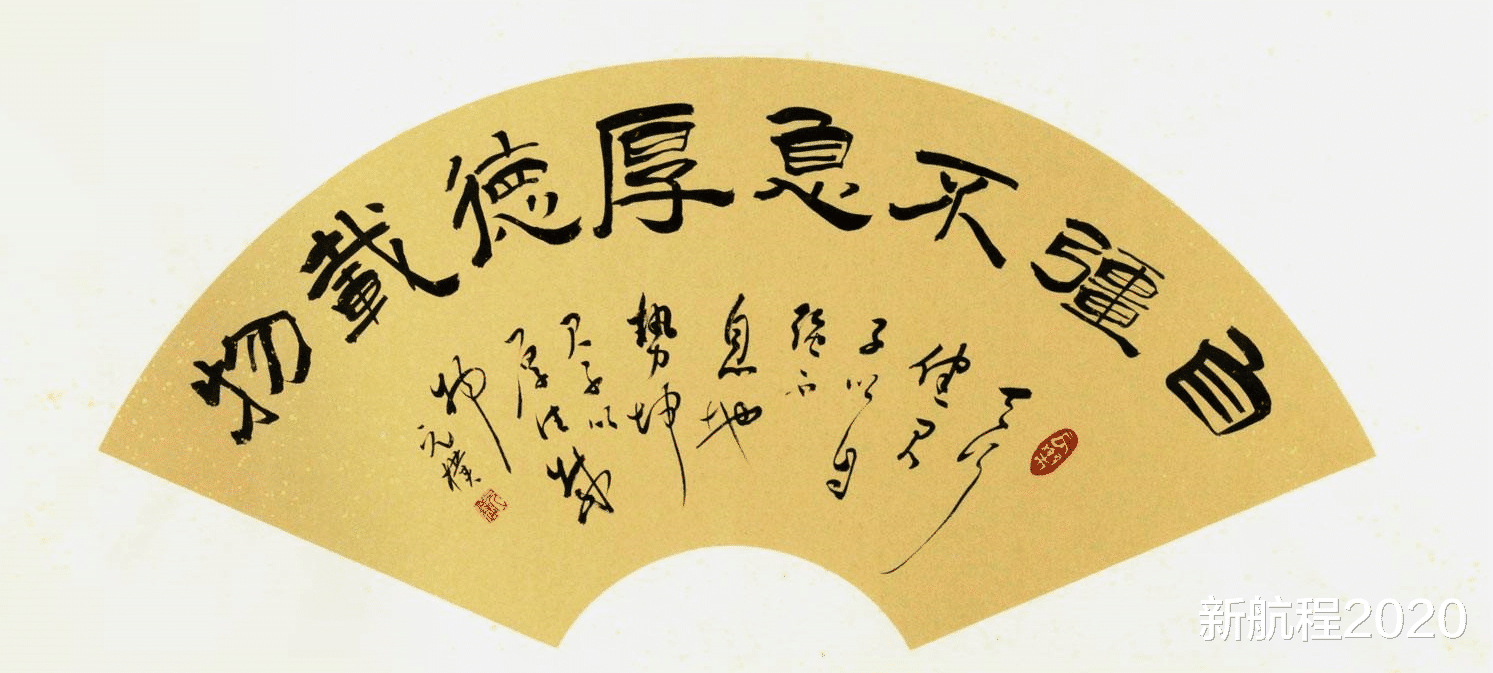 自彊不息厚德載物
天行
健君
子以自
強不
息地
勢坤
君子以
厚德載
物
元樸
新航程2020